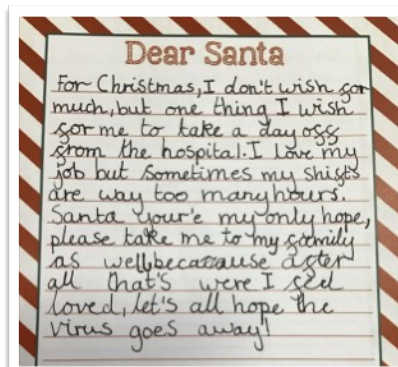 Dear Santa
For Christmas, I don't wish for
much, but one thing I wish
for me to take a day off
from the hospital. I love my
job but sometimes my shifts
are way too many hours.
Santa your'e my only hope,
please take me to my family
as well because after
all that's were I feel
loved, let's all hope the
virus goes away!